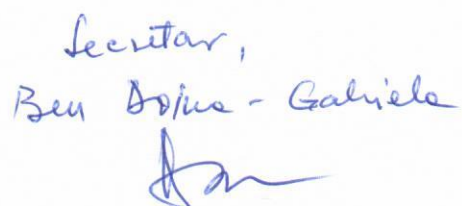 Secretar,
Ben Doina - Gabriela